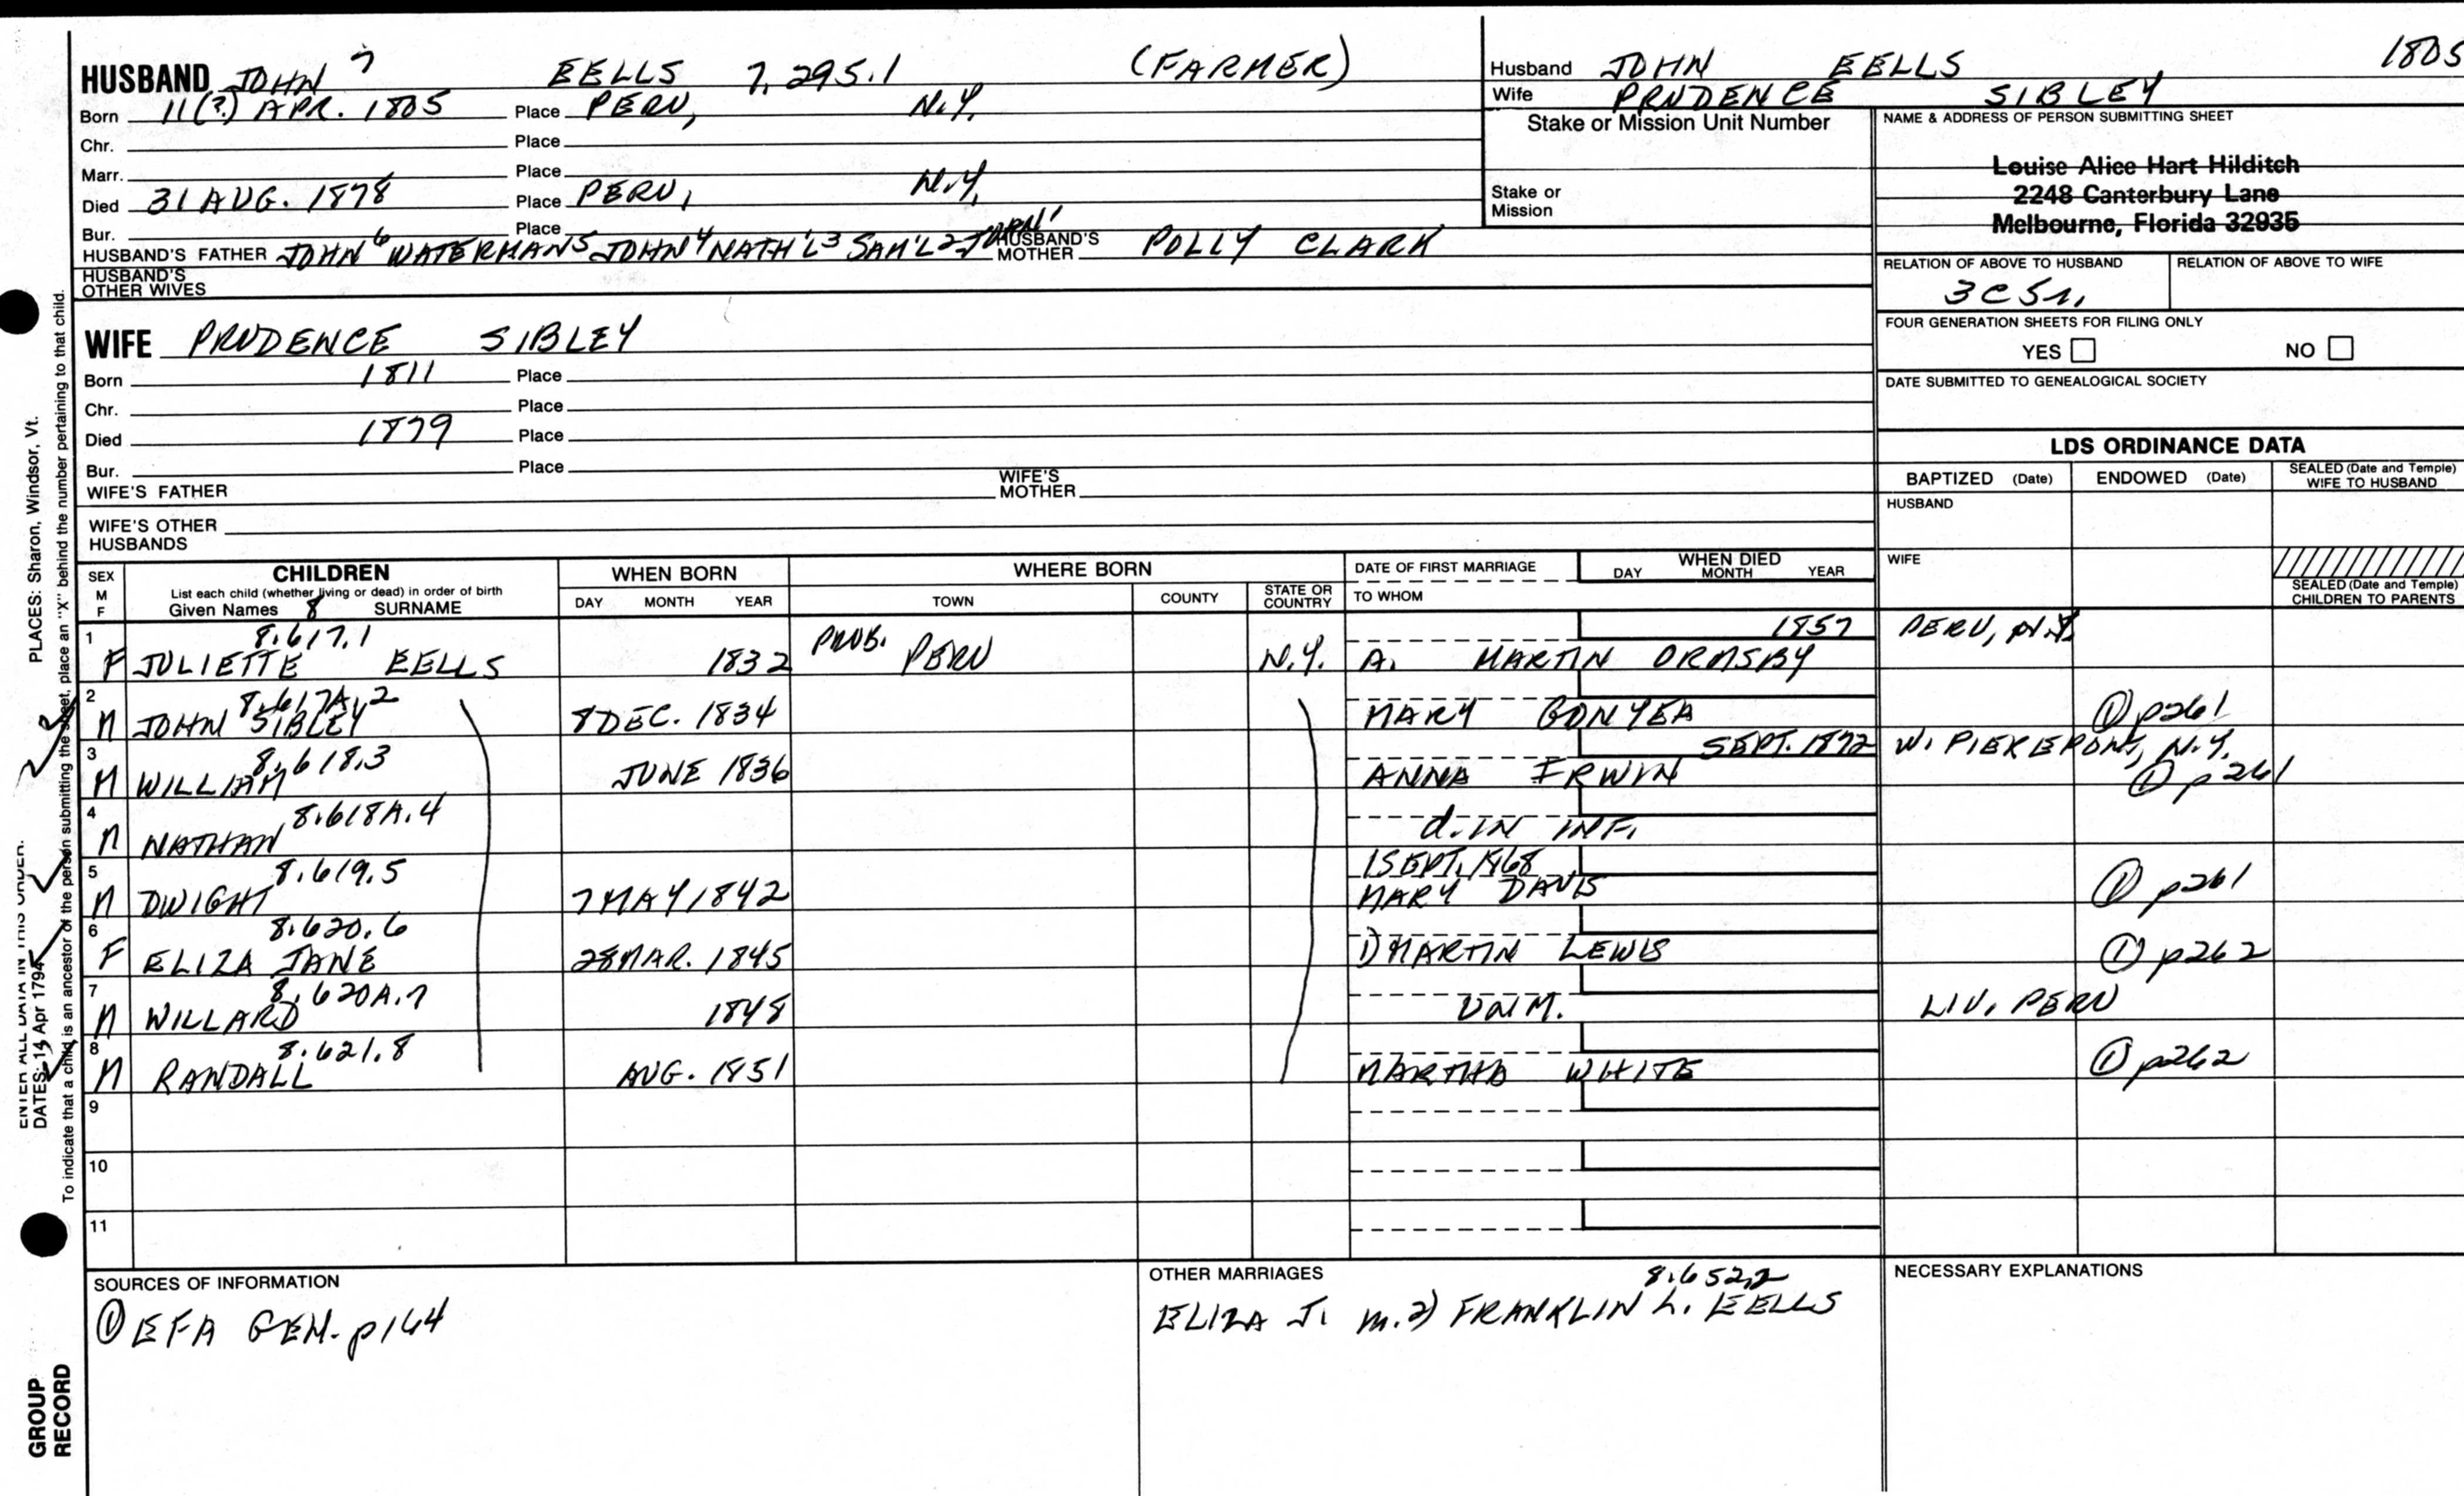 HUSBAND JOHN 7 EELLS 7.295.1 (FARMER)
Born 11(?) APR. 1805 Place PERU, N.Y.
Chr. Place
Marr. Place
Died 31 AUG. 1878 Place PERU, N.Y.
Bur. Place
HUSBAND'S FATHER JOHN 6 WATERMAN 5 JOHN 4 NATH'L 3 SAM'L 2 JOHN 1 HUSBAND'S MOTHER POLLY CLARK
HUSBAND'S OTHER WIVES
WIFE PRUDENCE SIBLEY
Born 1811 Place
Chr. Place
Died 1879 Place
Bur. Place
WIFE'S FATHER WIFE'S MOTHER
WIFE'S OTHER HUSBANDS
Husband JOHN EELLS 1805
Wife PRUDENCE SIBLEY
Stake or Mission Unit Number
Stake or Mission
NAME & ADDRESS OF PERSON SUBMITTING SHEET
Louise Alice Hart Hilditch
2248 Canterbury Lane
Melbourne, Florida 32935
RELATION OF ABOVE TO HUSBAND RELATION OF ABOVE TO WIFE
3C5r.
FOUR GENERATION SHEETS FOR FILING ONLY
YES NO
DATE SUBMITTED TO GENEALOGICAL SOCIETY
LDS ORDINANCE DATA
BAPTIZED (Date) ENDOWED (Date) SEALED (Date and Temple) WIFE TO HUSBAND
HUSBAND
WIFE
SEALED (Date and Temple) CHILDREN TO PARENTS
SEX M F
CHILDREN
List each child (whether living or dead) in order of birth
Given Names 8 SURNAME
WHEN BORN
DAY MONTH YEAR
WHERE BORN
TOWN COUNTY STATE OR COUNTRY
DATE OF FIRST MARRIAGE
TO WHOM
WHEN DIED
DAY MONTH YEAR
1 8.617.1 1857 PERU, N.Y.
F JULIETTE EELLS 1832 PROB. PERU N.Y. A. MARTIN ORMSBY
2 8.617A.2
M JOHN SIBLEY 8 DEC. 1834 MARY GONYEA ① p261
3 8.618.3 SEPT. 1872 W. PIEREPONT, N.Y.
M WILLIAM JUNE 1836 ANNA IRWIN ① p261
4 8.618A.4
M NATHAN d. IN INF.
5 8.619.5 1 SEPT. 1868
M DWIGHT 7 MAY 1842 MARY DAVIS ① p261
6 8.620.6
F ELIZA JANE 28 MAR. 1845 1) MARTIN LEWIS ① p262
7 8.620A.7
M WILLARD 1848 UNM. LIV. PERU
8 8.621.8
M RANDALL AUG. 1851 MARTHA WHITE ① p262
9
10
11
SOURCES OF INFORMATION
① EFA GEN. p164
OTHER MARRIAGES 8.652.2
ELIZA J. m. 2) FRANKLIN L. EELLS
NECESSARY EXPLANATIONS
PLACES: Sharon, Windsor, Vt.
ENTER ALL DATA IN THIS ORDER:
DATES: 14 Apr 1794
To indicate that a child is an ancestor of the person submitting the sheet, place an "X" behind the number pertaining to that child.
GROUP RECORD